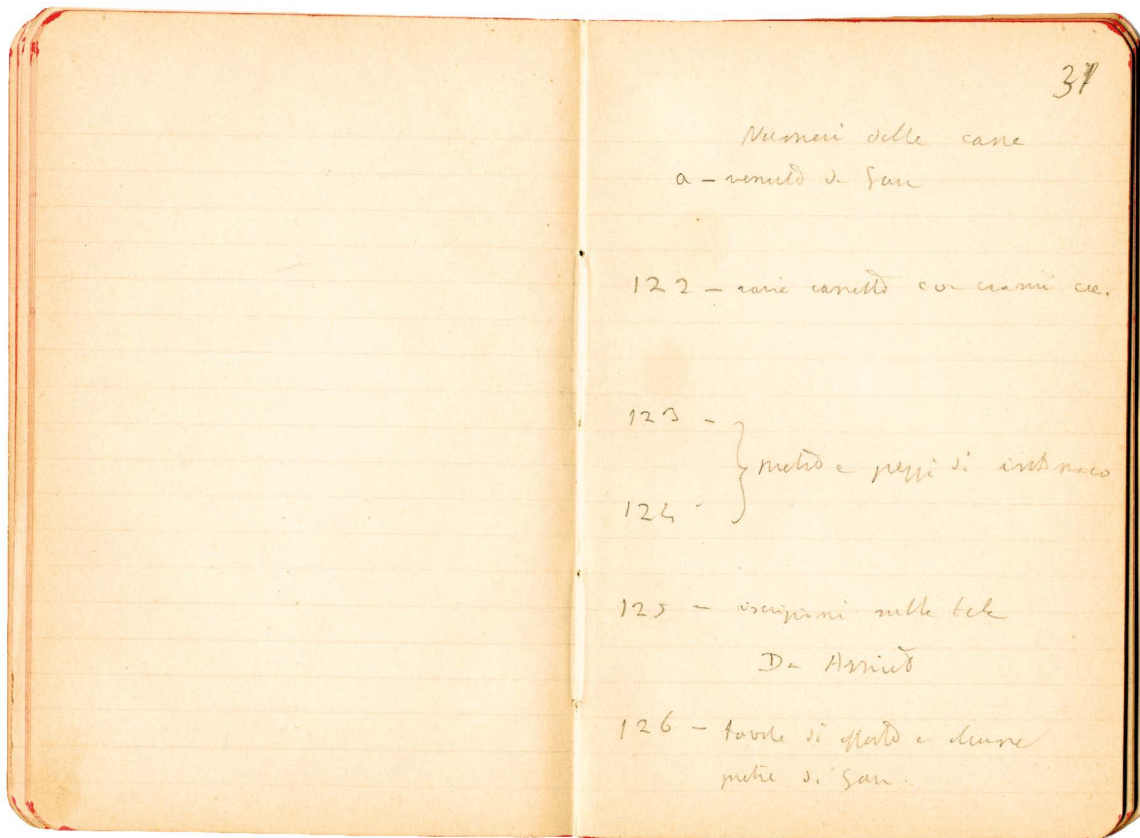 37
Numeri delle casse
a - venuto da Gau
122 - varie cassetto con crani ecc.
123 -
pietre e pezzi di intonaco
124 -
125 - iscrizioni sulle tele
Da Assiut
126 - tavole di offerte e alcune
pietre di Gau.